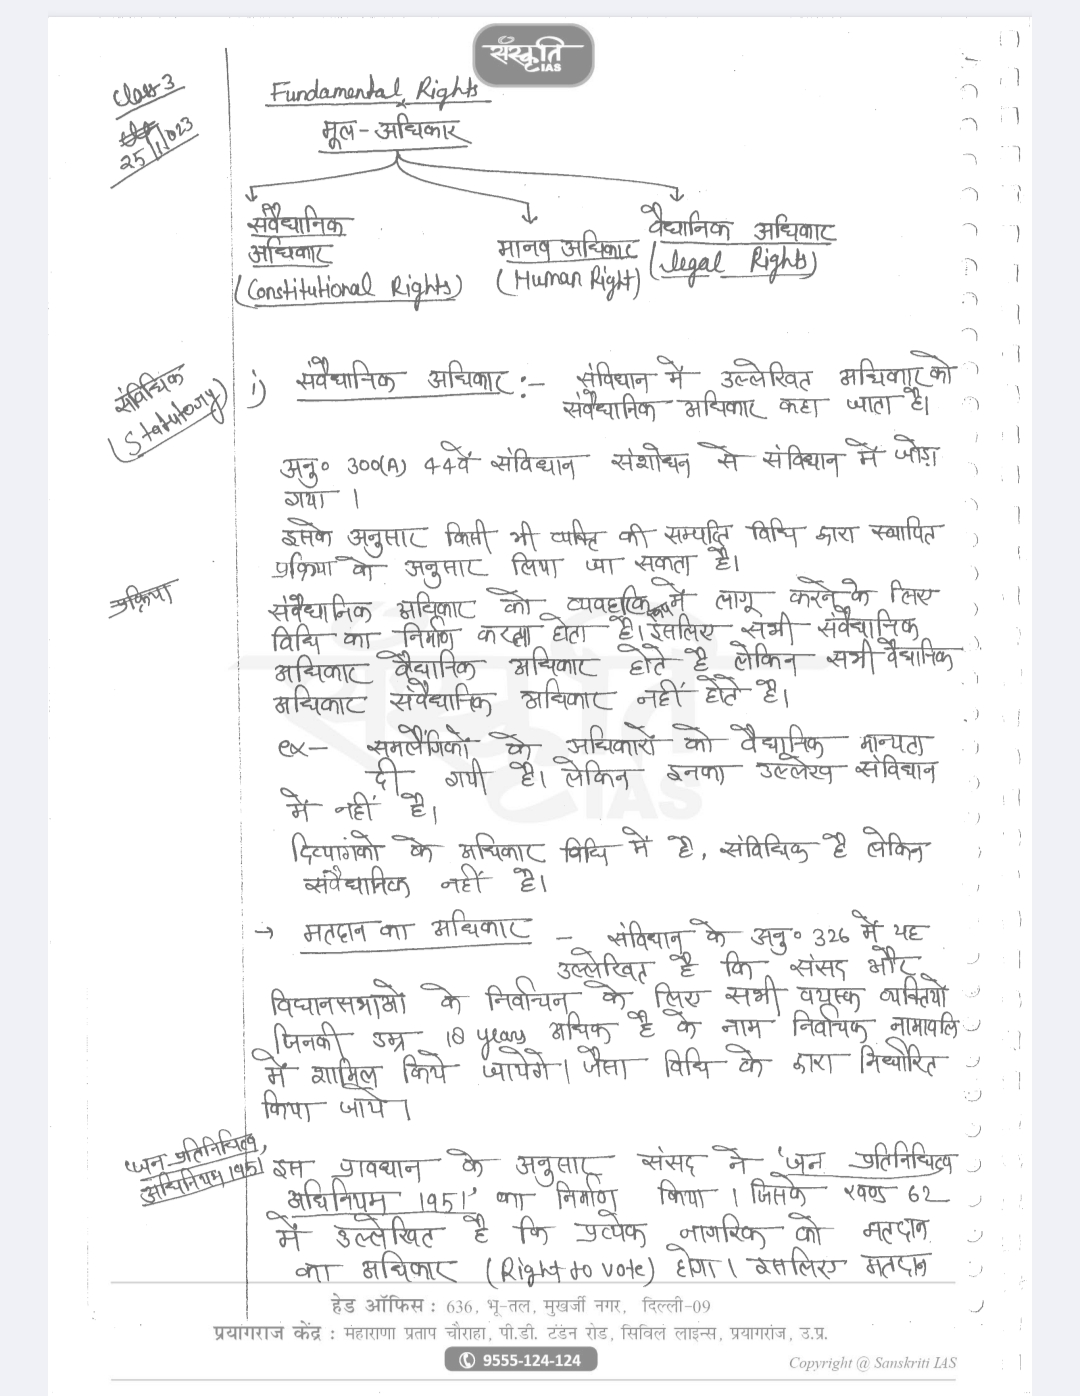 संस्कृति
IAS
Class 3
25/1/023
Fundamental Rights
मूल-अधिकार
संवैधानिक
अधिकार
(Constitutional Rights)
मानव अधिकार
(Human Right)
वैधानिक अधिकार
(legal Rights)
संविधिक
(Statutory)
i) संवैधानिक अधिकार :- संविधान में उल्लेखित अधिकार को
संवैधानिक अधिकार कहा जाता है।
अनु० 300(A) 44वें संविधान संशोधन से संविधान में जोड़ा
गया ।
इसके अनुसार किसी भी व्यक्ति की सम्पत्ति विधि द्वारा स्थापित
प्रक्रिया के अनुसार लिया जा सकता है।
प्रक्रिया
संवैधानिक अधिकार को व्यवहारिक रूप में लागू करने के लिए
विधि का निर्माण करना होता है। इसलिए सभी संवैधानिक
अधिकार वैधानिक अधिकार होते है लेकिन सभी वैधानिक
अधिकार संवैधानिक अधिकार नहीं होते है।
ex- समलैंगिकों के अधिकारों को वैधानिक मान्यता
दी गयी है। लेकिन इनका उल्लेख संविधान
में नहीं है।
दिव्यांगको के अधिकार विधि में है, संविधिक है लेकिन
संवैधानिक नहीं है।
→ मतदान का अधिकार - संविधान के अनु० 326 में यह
उल्लेखित है कि संसद और
विधानसभाओं के निर्वाचन के लिए सभी वयस्क व्यक्तियों
जिनकी उम्र 18 years अधिक है के नाम निर्वाचक नामावलि
में शामिल किये जायेगे। जैसा विधि के द्वारा निर्धारित
किया जाये ।
'जन प्रतिनिधित्व,
अधिनियम 1951
इस प्रावधान के अनुसार संसद ने 'जन प्रतिनिधित्व
अधिनियम 1951' का निर्माण किया । जिसके खण्ड 62
में उल्लेखित है कि प्रत्येक नागरिक को मतदान
का अधिकार (Right to vote) होगा। इसलिए मतदान
हेड ऑफिस : 636, भू-तल, मुखर्जी नगर, दिल्ली-09
प्रयागराज केंद्र : महाराणा प्रताप चौराहा, पी.डी. टंडन रोड, सिविल लाइन्स, प्रयागराज, उ.प्र.
9555-124-124
Copyright @ Sanskriti IAS